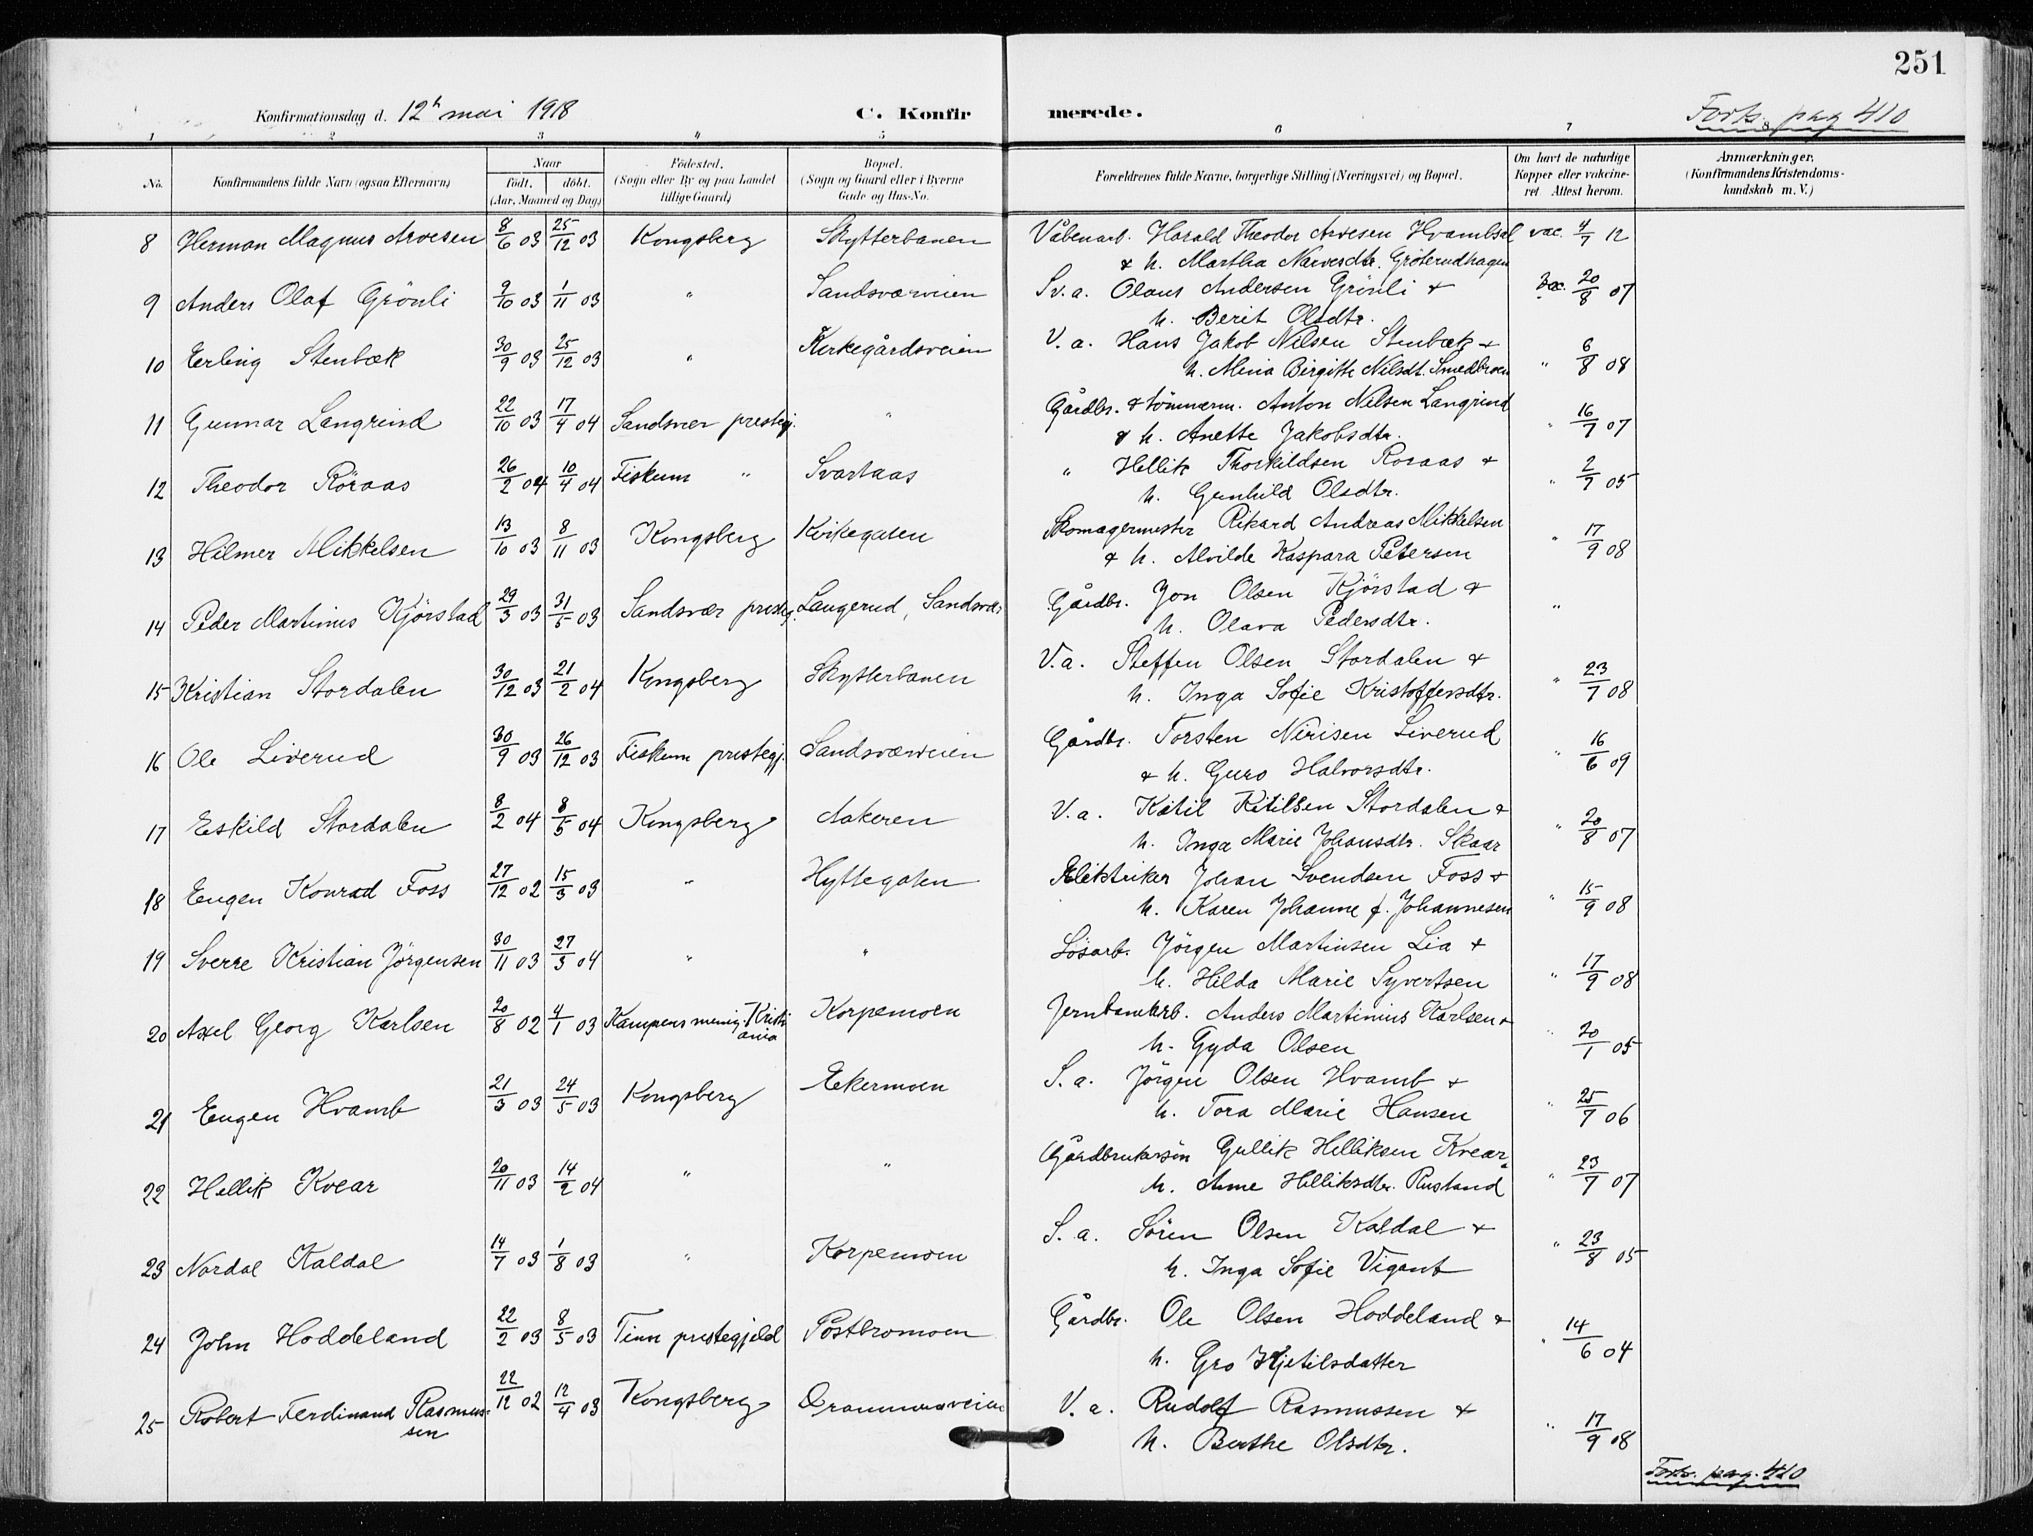 251
Konfirmationsdag d. 12te mai 1918 C. Konfirmerede. Forts. pag 410
1 2 3 4 5 6 7 8
No. Konfirmandens fulde Navn (ogsaa Efternavn) Naar født. døbt. (Aar, Maaned og Dag) Fødested. (Sogn eller By og paa Landet tillige Gaard) Bopæl. (Sogn og Gaard eller i Byerne Gade og Hus-No. Forældrenes fulde Navne, borgerlige Stilling (Næringsvei) og Bopæl. Om havt de naturlige Kopper eller vakcineret. Attest herom. Anmærkninger. (Konfirmandens Kristendomskundskab m. V.)
8 Herman Magnus Arvesen 8/6 03 25/12 03 Kongsberg Skytterbanen Våbenarb. Harald Theodor Arvesen Hvambsal vac. 4/7 12
& h. Martha Narvesdtr. Gröterudhagen
9 Anders Olaf Grönli 9/10 03 1/11 03 " Sandsværveien Sv. a. Olaus Andersen Grönli & vac. 20/8 07
h. Berit Olsdtr.
10 Erling Stenbæk 30/9 03 25/12 03 " Kirkegårdsveien V. a. Hans Jakob Nilsen Stenbæk &
h. Mina Birgitte Nilsdt. Smedbroen " 6/8 08
11 Gunnar Langrind 22/10 03 17/4 04 Sandsvær presteg. " Gårdbr. & tömmerm. Anton Nilsen Langrind " 16/7 07
& h. Anette Jakobsdtr.
12 Theodor Röraas 26/2 04 10/4 04 Fiskum " Svartaas " Hellik Thorkildsen Roraas & " 2/7 05
h. Gunhild Olsdtr.
13 Hilmer Mikkelsen 13/10 03 8/11 03 Kongsberg Kirkegaten Skomagermester Rikard Andreas Mikkelsen " 17/9 08
& h. Alvilde Kaspara Petersen
14 Peder Martinus Kjörstad 29/3 03 31/5 03 Sandsvær presteg. Langerud, Sandsvær Gårdbr. Jon Olsen Kjörstad & "
h. Olava Pedersdtr.
15 Kristian Stordalen 30/12 03 21/2 04 Kongsberg Skytterbanen V. a. Steffen Olsen Stordalen & " 23/7 08
h. Inga Sofie Kristoffersdtr.
16 Ole Liverud 30/9 03 26/12 03 Fiskum prestegj. Sandsværveien Gårdbr. Torsten Nirisen Liverud " 16/6 09
& h. Guro Halvorsdtr.
17 Eskild Stordalen 8/2 04 8/5 04 Kongsberg Aakeren V. a. Ketil Ketilsen Stordalen & " 20/8 07
h. Inga Marie Johansdtr. Skaar
18 Eugen Konrad Foss 27/12 02 15/3 03 " Hyttegaten Elektriker Johan Svendsen Foss & " 15/9 08
h. Karen Johanne f. Johannesen
19 Sverre Kristian Jörgensen 30/11 03 27/3 04 " " Lösarb. Jörgen Martinsen Lia & " 17/9 08
h. Hilda Marie Syvertsen
20 Axel Georg Karlsen 20/8 02 4/1 03 Kampens menig. Kristiania Korpemoen Jernbanearb. Anders Martinius Karlsen & " 20/1 05
h. Gyda Olsen
21 Eugen Hvamb 21/3 03 24/5 03 Kongsberg Ekermoen S. a. Jörgen Olsen Hvamb & " 25/7 06
h. Tora Marie Hansen
22 Hellik Kvear 20/11 03 14/2 04 " " Gårdbrukersön Gullik Helliksen Kvear & " 23/7 07
h. Anne Helliksdtr. Rustand
23 Nordal Kaldal 14/7 03 1/8 03 " Korpemoen S. a. Sören Olsen Kaldal & " 23/8 05
h. Inga Sofie Vigant
24 John Hoddeland 22/2 03 8/5 03 Tinn prestegjeld Postbromoen Gårdbr. Ole Olsen Hoddeland & " 14/6 04
h. Gro Kjetilsdatter
25 Robert Ferdinand Rasmussen 22/12 02 12/4 03 Kongsberg Drammensveien V. a. Rudolf Rasmussen & " 17/9 08
h. Berthe Olsdtr.
Forts. pag. 410